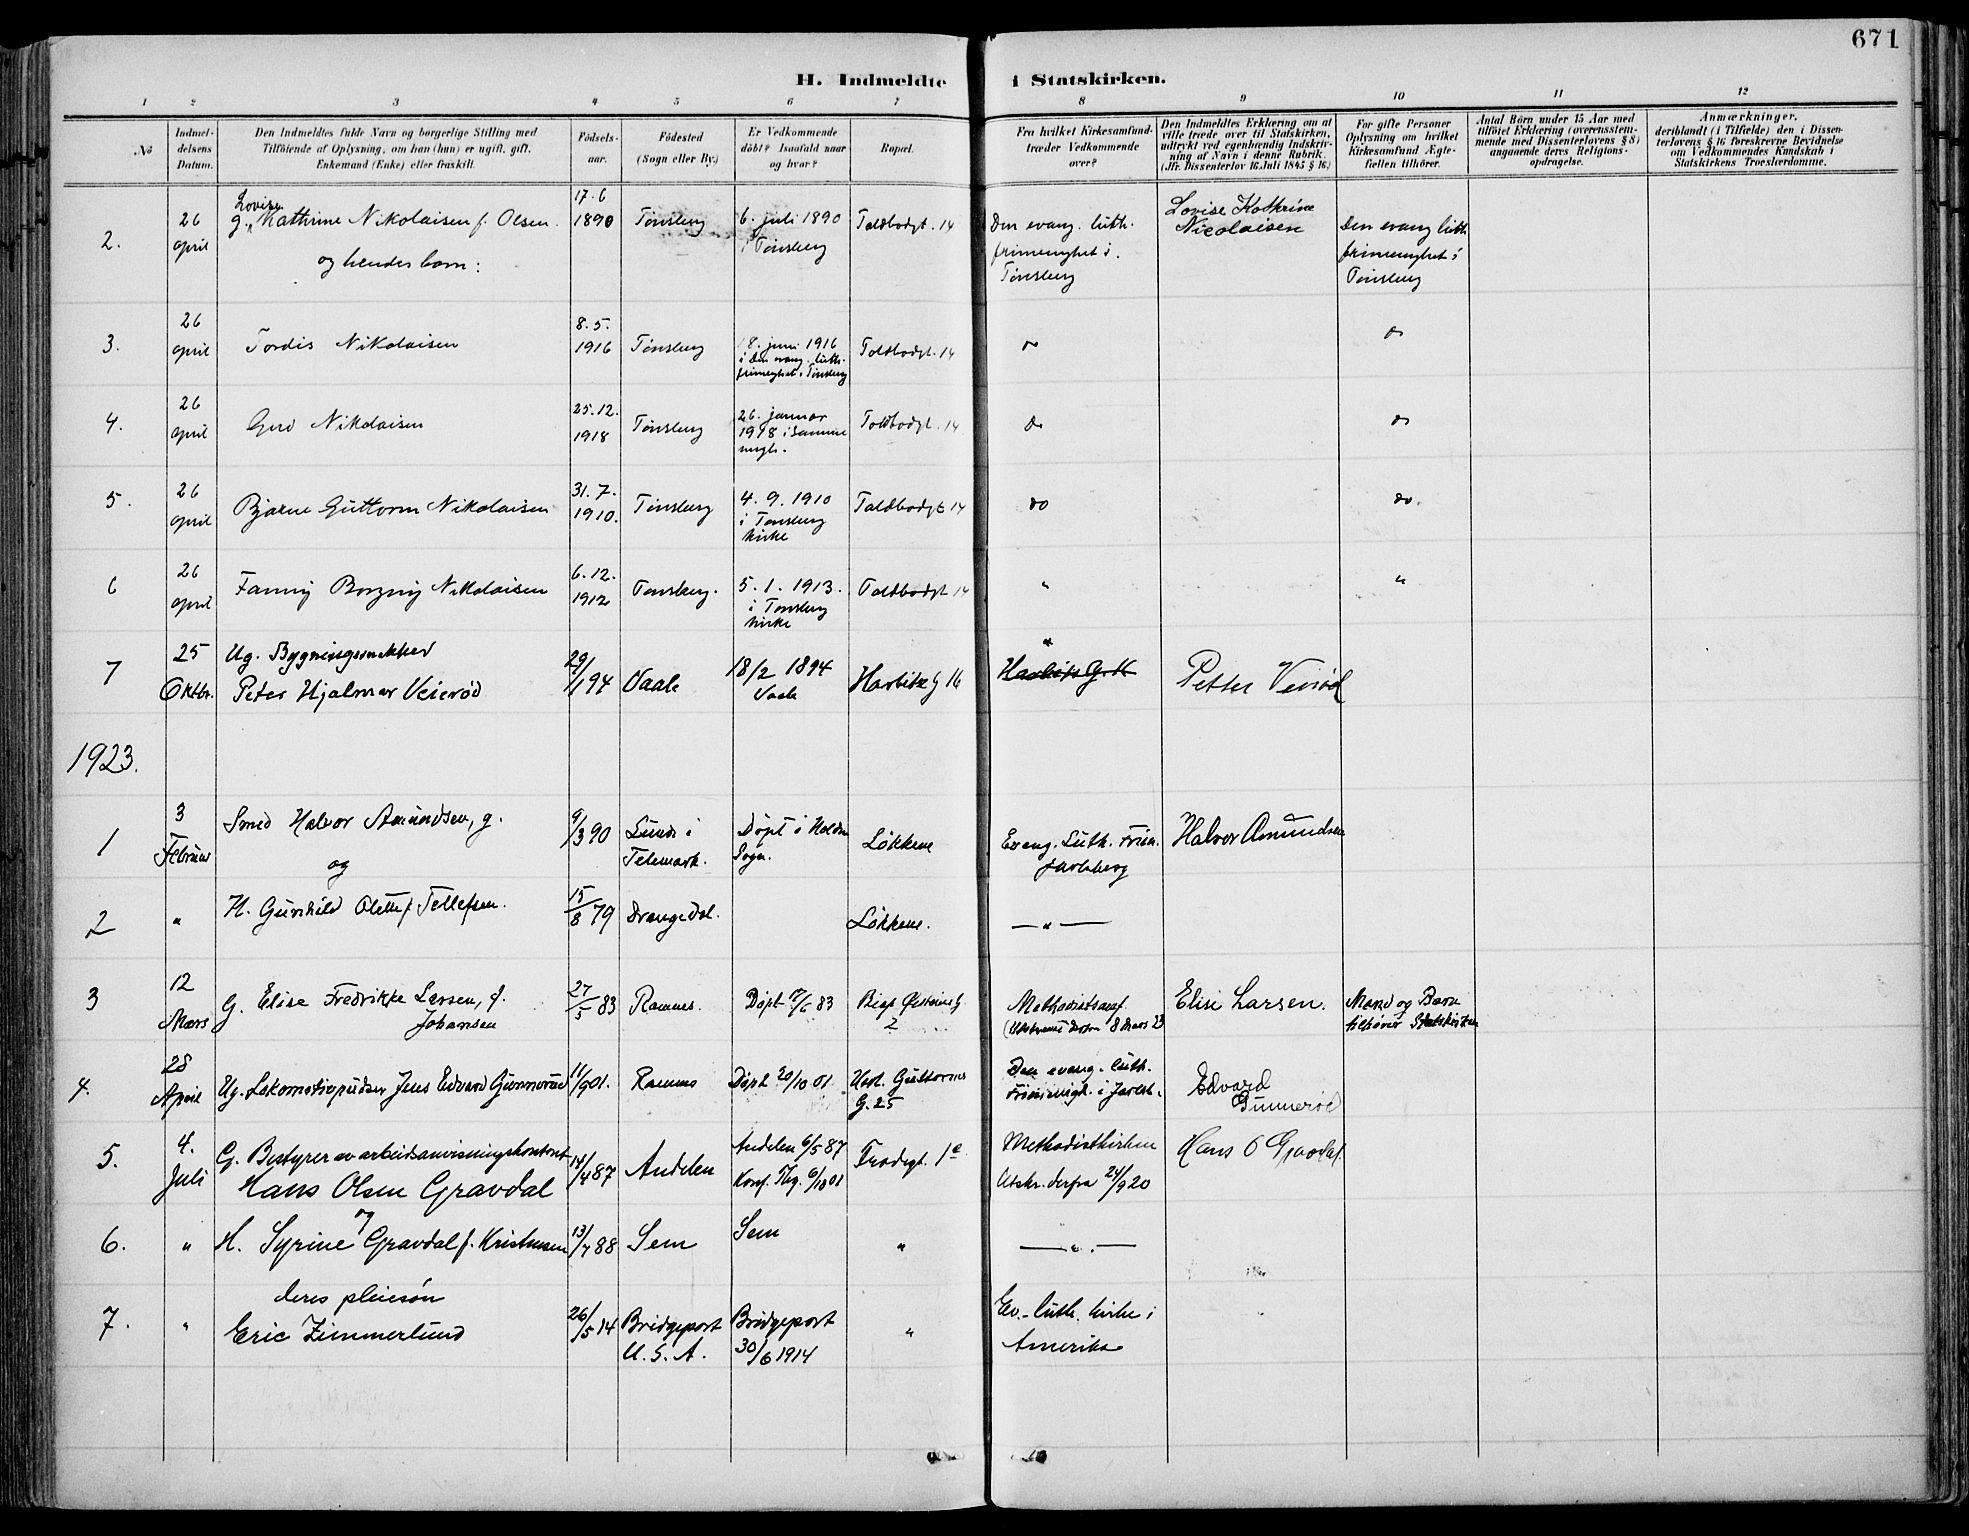 671
H. Indmeldte i Statskirken.
1 2 3 4 5 6 7 8 9 10 11 12
No
Indmel-
delsens
Datum.
Den Indmeldtes fulde Navn og borgerlige Stilling med
Tilföiende af Oplysning, om han (hun) er ugift, gift,
Enkemand (Enke) eller fraskilt.
Födsels-
aar.
Födested
(Sogn eller By.)
Er Vedkommende
döbt? Isaafald naar
og hvor?
Bopæl.
Fra hvilket Kirkesamfund
træder Vedkommende
over?
Den Indmeldtes Erklæring, om at
ville træde over til Statskirken,
udtrykt ved egenhændig Indskriv-
ning af Navn i denne Rubrik.
(Jfr. Dissenterlov 16 Juli 1845 § 16.)
For gifte Personer
Oplysning om hvilket
Kirkesamfund Ægte-
fællen tilhörer.
Antal Börn under 15 Aar med
tilföiet Erklæring (overensstem-
mende med Dissenterlovens § 8)
angaaende deres Religions-
opdragelse.
Anmærkninger,
deriblandt (i Tilfælde) den i Dissen-
terlovens § 16 foreskrevne Bevidnelse
om Vedkommendes Kundskab i
Statskirkens Troeslærdomme.
2.
26
april
Lovise
g. Kathrine Nikolaisen f. Olsen.
og hendes barn:
17.6
1890
Tønsberg
6. juli 1890
i Tønsberg
Toldbodgt. 14
Den evang. luth.
frimenighet i
Tønsberg
Lovise Kathrine
Nicolaisen
Den evang luth
frimenighet i
Tønsberg
3.
26
april
Tordis Nikolaisen
8.5.
1916
Tønsberg
18. juni 1916
i den evang. luth.
frimenighet i Tønsberg
Toldbodgt. 14
do
do
4.
26
april
Gerd Nikolaisen
25.12.
1918
Tønsberg
26. januar
1918 i samme
mngh.
Toldbodgt. 14
do
do
5.
26
april
Bjarne Guttorm Nikolaisen
31.7.
1910.
Tønsberg
4.9.1910
i Tønsberg
kirke
Toldbodgt 14
do
do.
6
26
april
Fanny Borgny Nikolaisen
6.12.
1912
Tønsberg.
5.1.1913.
i Tønsberg
kirke
Toldbodgt 14
"
"
7
25
Oktbr.
Ug. Bygningssnekker
Peter Hjalmar Veierød
29/1 94
Vaale
18/2 1894
Vaale
Harbitz g 16
"
Petter Veirød
1923.
1
3
Februar
Smed Halvor Amundsen, g.
og
9/3 90
Lunde i
Telemark.
Døpt i Holden
Sogn.
Løkkene
Evang. Luth. Frim.
Jarlsberg
Halvor Amundsen
2
"
H. Gunhild Olette f. Tellefsen.
15/8 79
Drangedal.
Løkkene.
— " —
3
12
Mars
G. Elise Fredrikke Larsen, f.
Johansen
27/5 83
Ramnes.
Døpt 17/6 83
2
Methodistsamf
8 Mars 23
Elise Larsen.
Mand og Barn
tilhører Statskirken
4.
28
April
Ug. Lokomotivpudser Jens Edvard Gunnerød
11/9 01.
Ramnes
Døpt 20/10 01
Hert. Guttorms
G. 25
Den evang. luth.
Frimenigh. i Jarlsb.
Edvard
Gunnerød
5.
4.
Juli
G. Bestyrer av arbeidsanvisningskontoret
Hans Olsen Gravdal
og
14/4 87
Andebu
Andebu 6/5 87
Konf. Tbg. 6/10 01
Frodegt. 1e
Methodistkirken
Utskr. derfra 24/9 20
Hans O Gravdal
6.
"
H. Syrine Gravdal f. Kristensen
13/7 88
Sem
Sem
"
— " —
7.
"
deres pleiesøn
Eric Zimmerlund
26/5 14
Bridgeport
U.S.A.
Bridgeport
30/6 1914
"
Ev.-luth. kirke i
Amerika